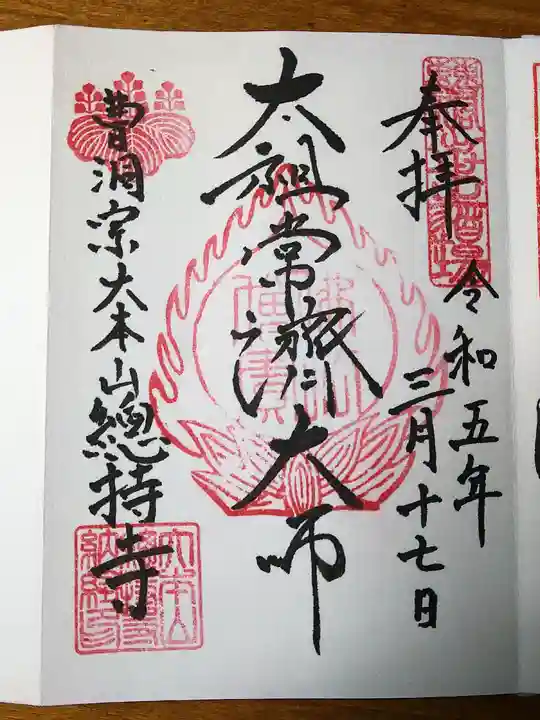 奉拝
令和五年
三月十七日
太祖常濟大師
曹洞宗大本山總持寺